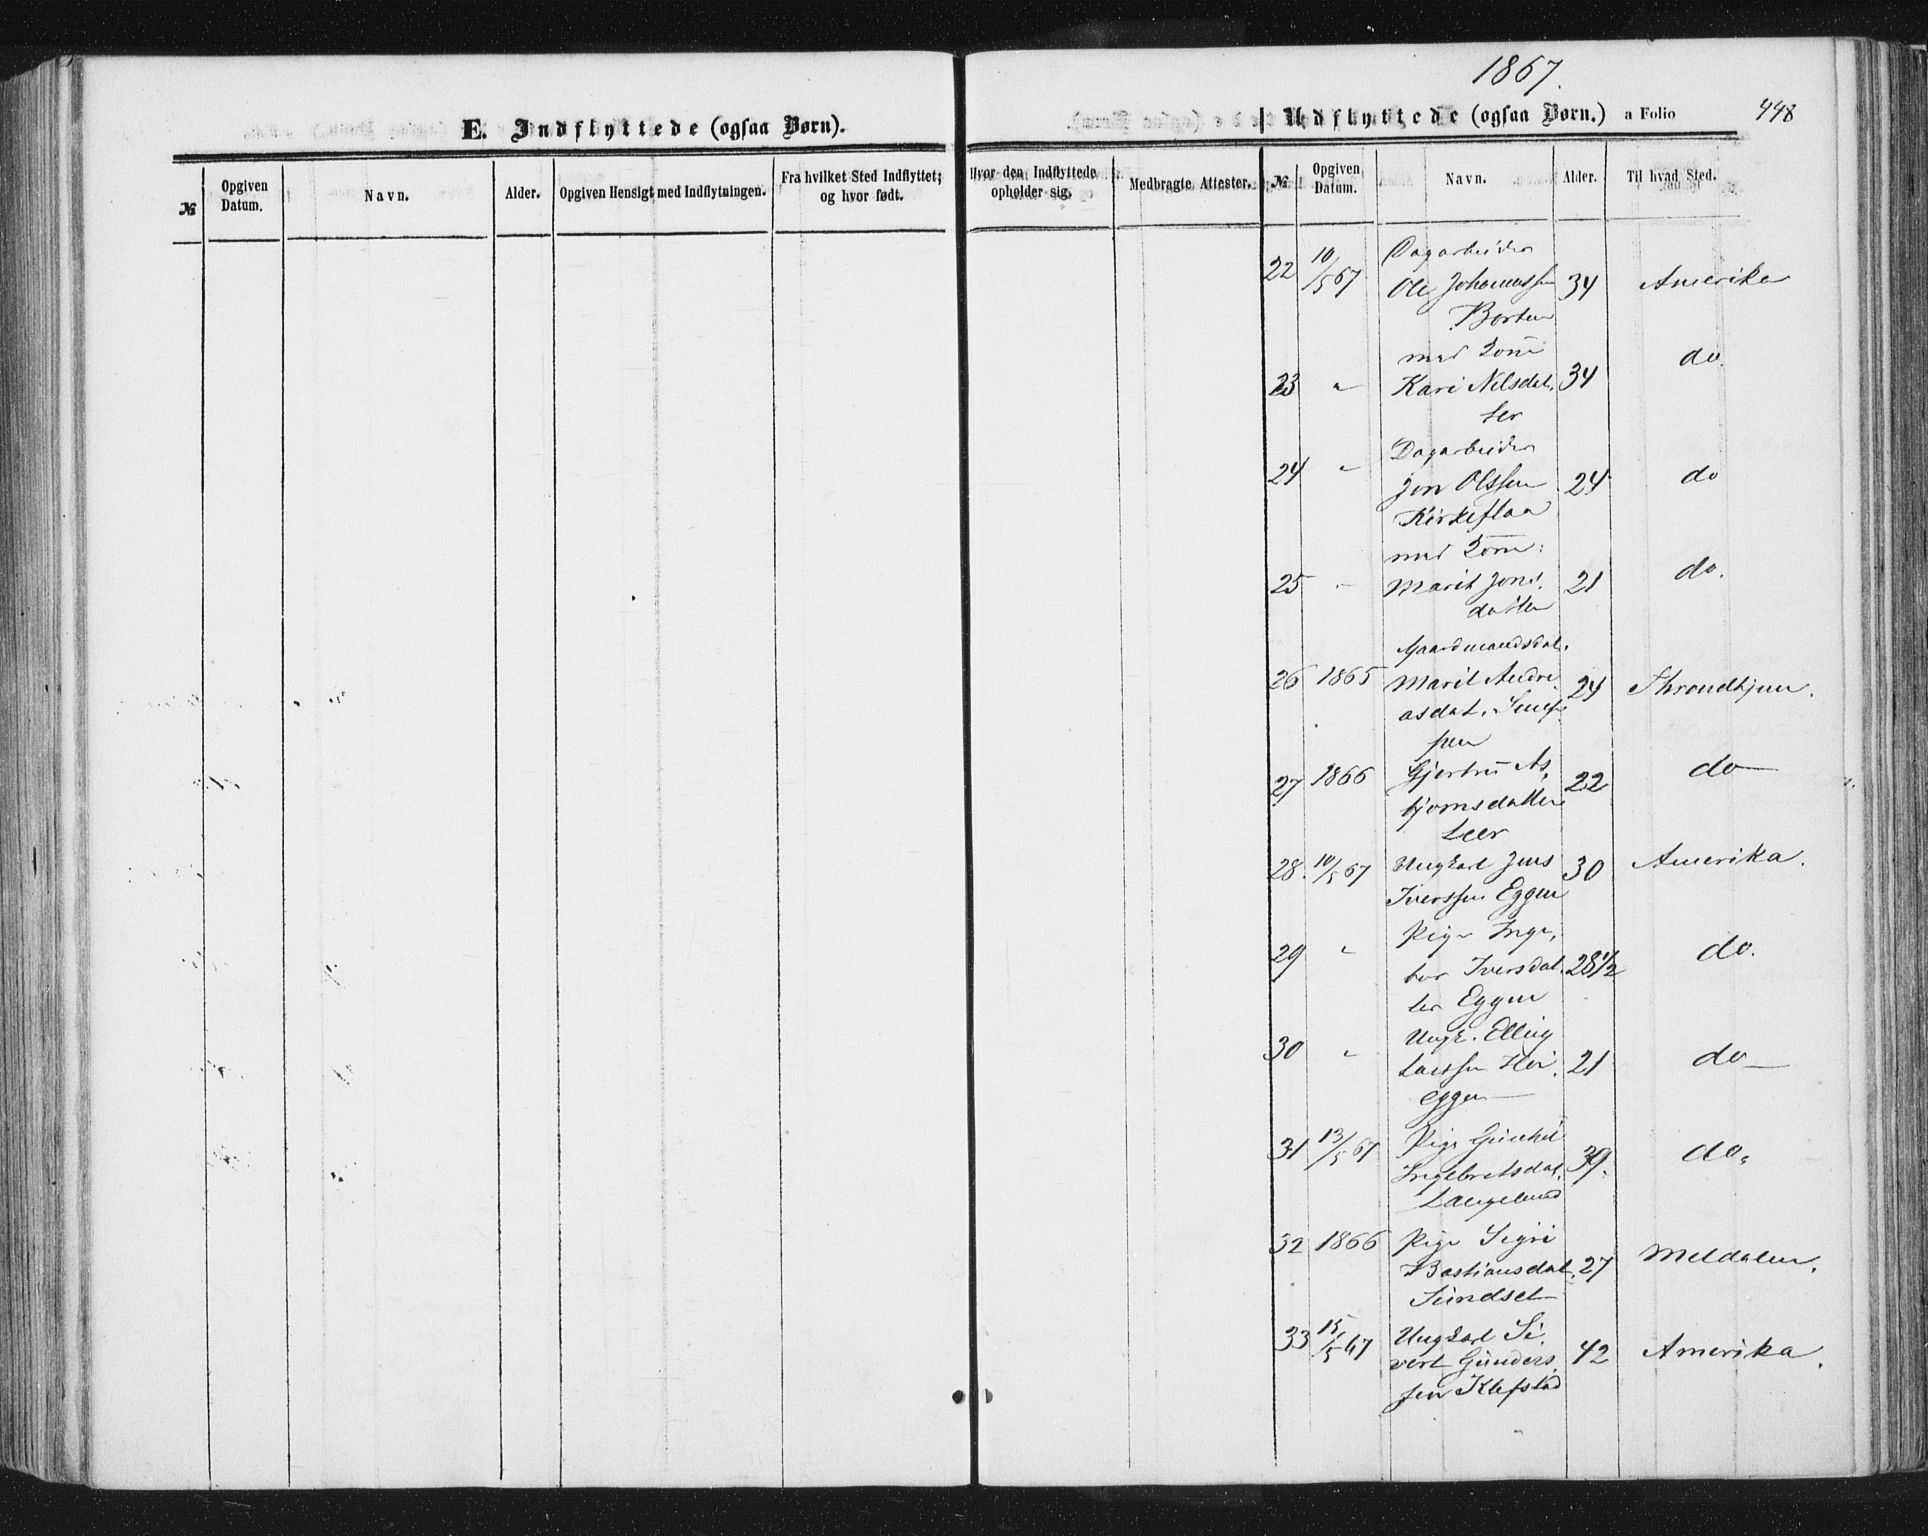 1867.
E. Indflyttede (ogsaa Børn).
Udflyttede (ogsaa Børn.) a Folio 448
№ Opgiven Datum. Navn. Alder. Opgiven Hensigt med Indflytningen. Fra hvilket Sted Indflyttet; og hvor født. Hvor den Indflyttede opholder sig. Medbragte Attester. № Opgiven Datum. Navn. Alder. Til hvad Sted.
Dagarbeider
22 10/5 67 Ole Johannessen 34 Amerika
Borten
med Kone do.
23 " Kari Nilsdat, 34
ter
Dagarbeider
24 " Jon Olssen 24 do
Kirkeflaa
med Kone:
25 " Marit Jons, 21 do.
datter
Gaardmandsdat.
26 1865 Marit Andre 24 Throndhjem.
asdat.
27 1866 Gjertru As, 22 do
bjørnsdatter
Leer
28. 10/5 67 Ungkarl Jens 30 Amerika.
Iverssen Eggen
Pige Inge,
29 " bor Iversdat, 28 1/2 do.
ter Eggen
Ungk. Elling
30 " Larssen Hor, 21 do
eggen
31 13/5 67 Pige Gunhil
Ingebretsdat, 39. do.
Langeland
32 1866 Pige Sigri
Bastiansdat. 27 Meldalen.
Sundset
33 15/5 67 Ungkarl Si,
vert Gunders, 42 Amerika.
sen Klefstad